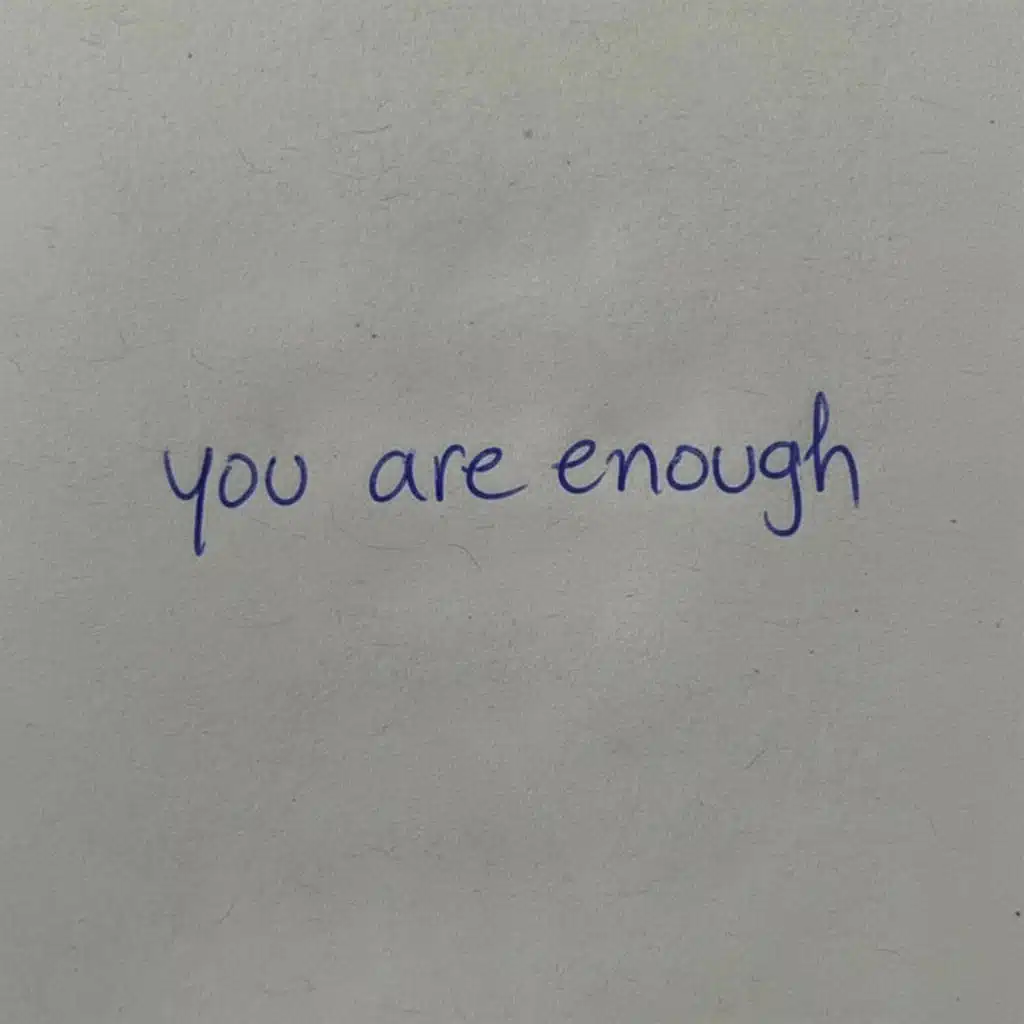 you are enough